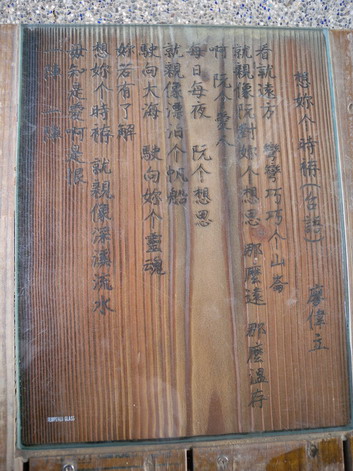 想妳个時陣(台語) 廖偉立
看就遠方 彎彎巧巧个山崙
就親像阮對妳个想思 那麼遠 那麼溫存
啊 阮个愛人
每日每夜 阮个想思
就親像漂泊个帆船
駛向大海 駛向妳个靈魂
妳若有了解
想妳个時陣 就親像深濃流水
毋知是愛啊是恨
一陣 一陣